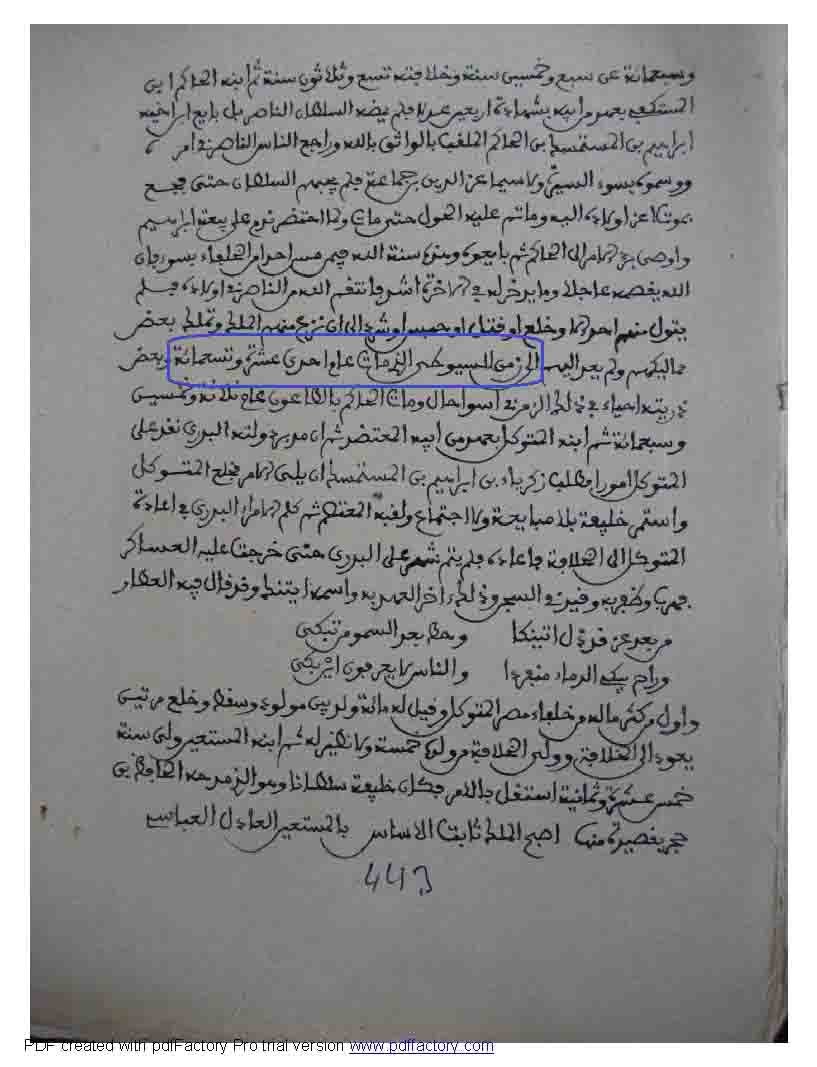 وسبعمائة عن سبع وخمسين سنة وخلافته تسع وثلاثون سنة ثم ابنه الحاكم ابن
المستكفي بعهد من ابيه بشهادة اربعين عدلا فلم يمضه السلطان الناصر بل بايع ابن اخيه
ابراهيم بن المستمسك بن الحاكم الملقب بالواثق بالله وراجع الناس الناصر في امره
ووسموه بسوء السيرة ولاسيما عز الدين بن جماعة فلم يجبهم السلطان حتى فجع
بموت اعز اولاده اليه وما تم عليه الحول حتى مات ولما احتضر ندم على بيعة ابراهيم
واوصى برد الامر الى الحاكم ثم بايعوه وهذه سنة الله فيمن مس احدا من الخلفاء بسوء فان
الله يقصمه عاجلا وما يدخر له في الاخرة اشد فانتقم الله من الناصر في اولاده فلم
يتول منهم احد الا وخلع او قتل او حبس او شرد الى ان نزع منهم الملك وتملك بعض
مماليكهم ولم يعد اليهم الى زمن السيوطي الذي مات عام احدى عشرة وتسعمائة وبعض
ذريته احياء في ذلك الزمن في اسوا حال ومات الحاكم بالطاعون عام ثلاثة وخمسين
وسبعمائة ثم ابنه المتوكل بعهد من ابيه المعتضد ثم ان مدبر دولته البدري نقم على
المتوكل امورا فطلب زكرياء بن ابراهيم بن المستمسك ان يلي الامر فخلع المتوكل
واستمر خليفة بلا مبايعة ولا اجتماع ولقبه المعتصم ثم كلم الامراء البدري في اعادة
المتوكل الى الخلافة فاعاده فلم يتم شهر على البدري حتى خرجت عليه العساكر
فهرب وظفر به وقيد في السجن وذلك اخر العهد به واسمه ايتنبك وقد قال فيه العطار
من بعد عز قد ذل اتينكا وحط بعد السمو من تبكي
وراح يبكي الدماء منفردا والناس لا يعرفون اين بكي
واول من كثر ماله من خلفاء مصر المتوكل وقيل له مائة ولد بين مولود وسقط وخلع مرتين
يعود الى الخلافة وولي الخلافة من ولده خمسة ولا نظير له ثم ابنه المستعين ولي سنة
خمس عشرة وثمانية استقل بالامر فكان خليفة سلطانا وهو الذي مدحه الحافظ بن
حجر بقصيدة منها اصبح الملك ثابت الاساس بالمستعين العادل العباسي
443
PDF created with pdfFactory Pro trial version www.pdffactory.com